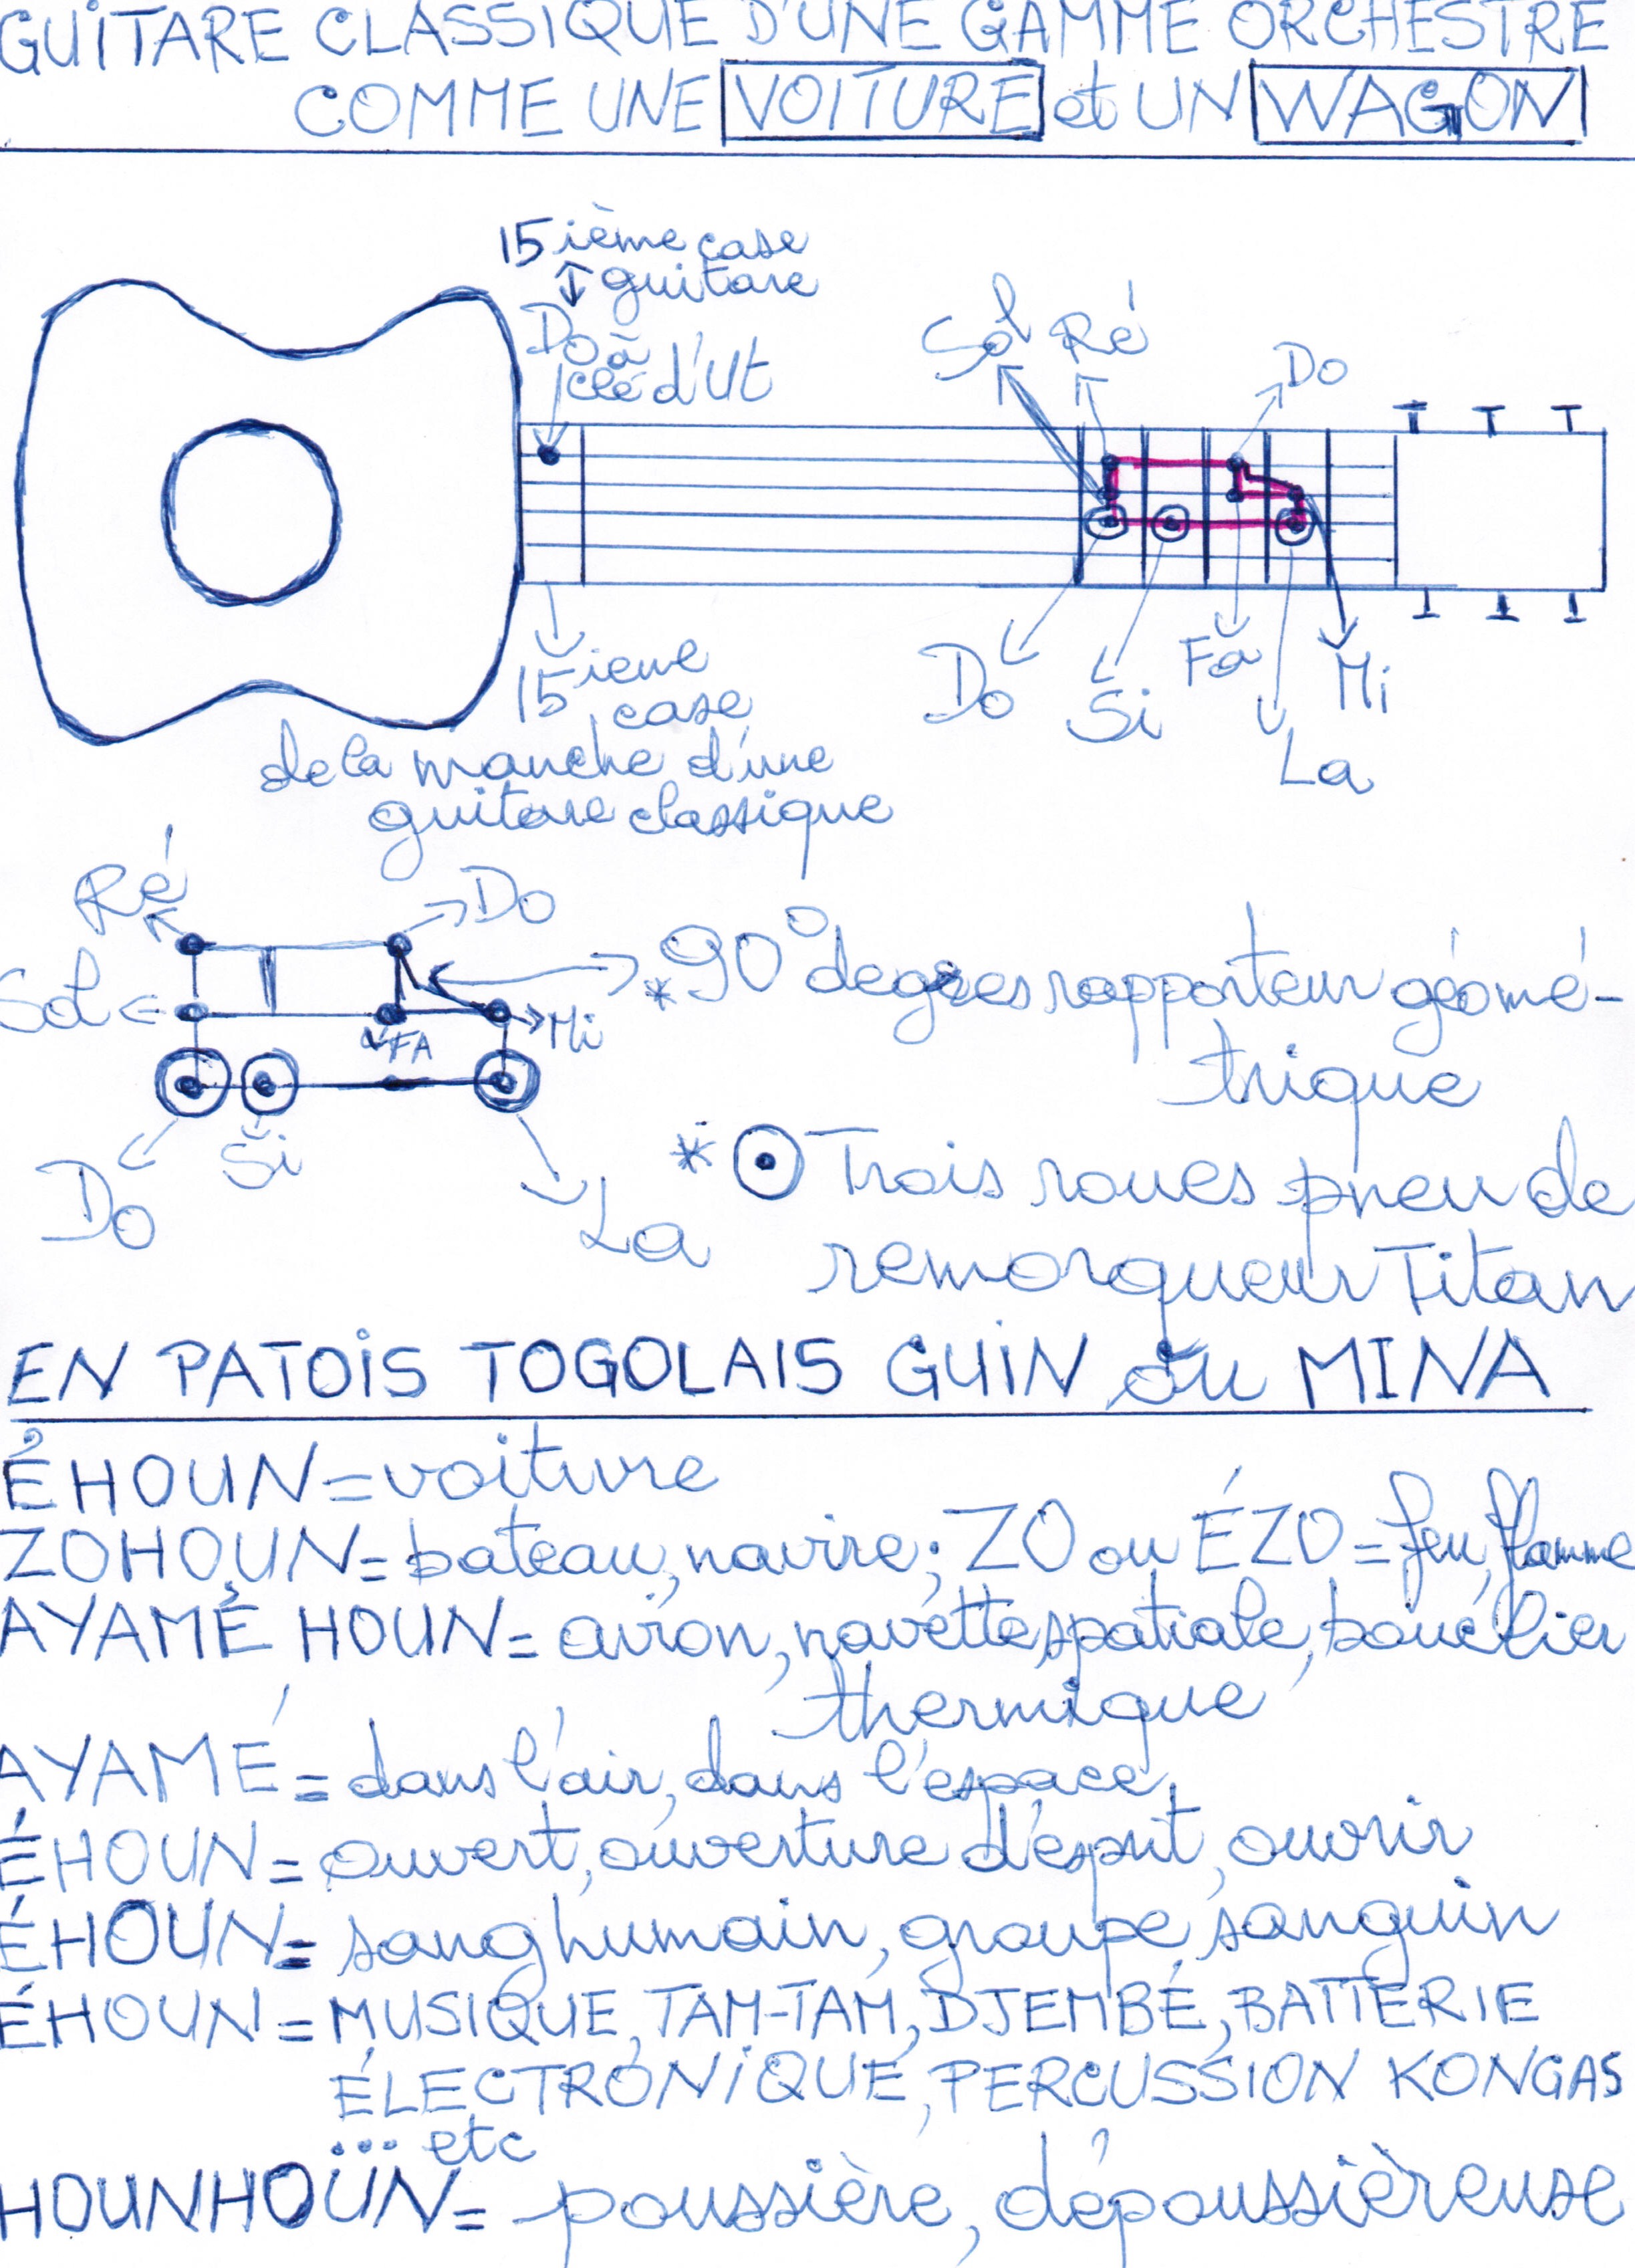 GUITARE CLASSIQUE D'UNE GAMME ORCHESTRE
COMME UNE VOITURE et UN WAGON
15 ième case
guitare
Do à
clé d'Ut
Sol Ré
Do
Do Si Fa La Mi
15 ieme
case
de la manche d'une
guitare classique
Ré
Do
Sol
FA
Mi
Do
Si
La
* 90° degrés rapporteur géomé-
trique
* Trois roues pneu de
remorqueur Titan
EN PATOIS TOGOLAIS GUIN ou MINA
ÉHOUN = voiture
ZOHOUN = bateau, navire; ZO ou ÉZO = feu, flamme
AYAMÉ HOUN = avion, navette spatiale, bouclier
thermique
AYAMÉ = dans l'air, dans l'espace
ÉHOUN = ouvert, ouverture d'esprit, ouvrir
ÉHOUN = sang humain, groupe sanguin
ÉHOUN = MUSIQUE, TAM-TAM, DJEMBÉ, BATTERIE
ÉLECTRONIQUE, PERCUSSION KONGAS
... etc
HOUNHOUN = poussière, dépoussièreuse